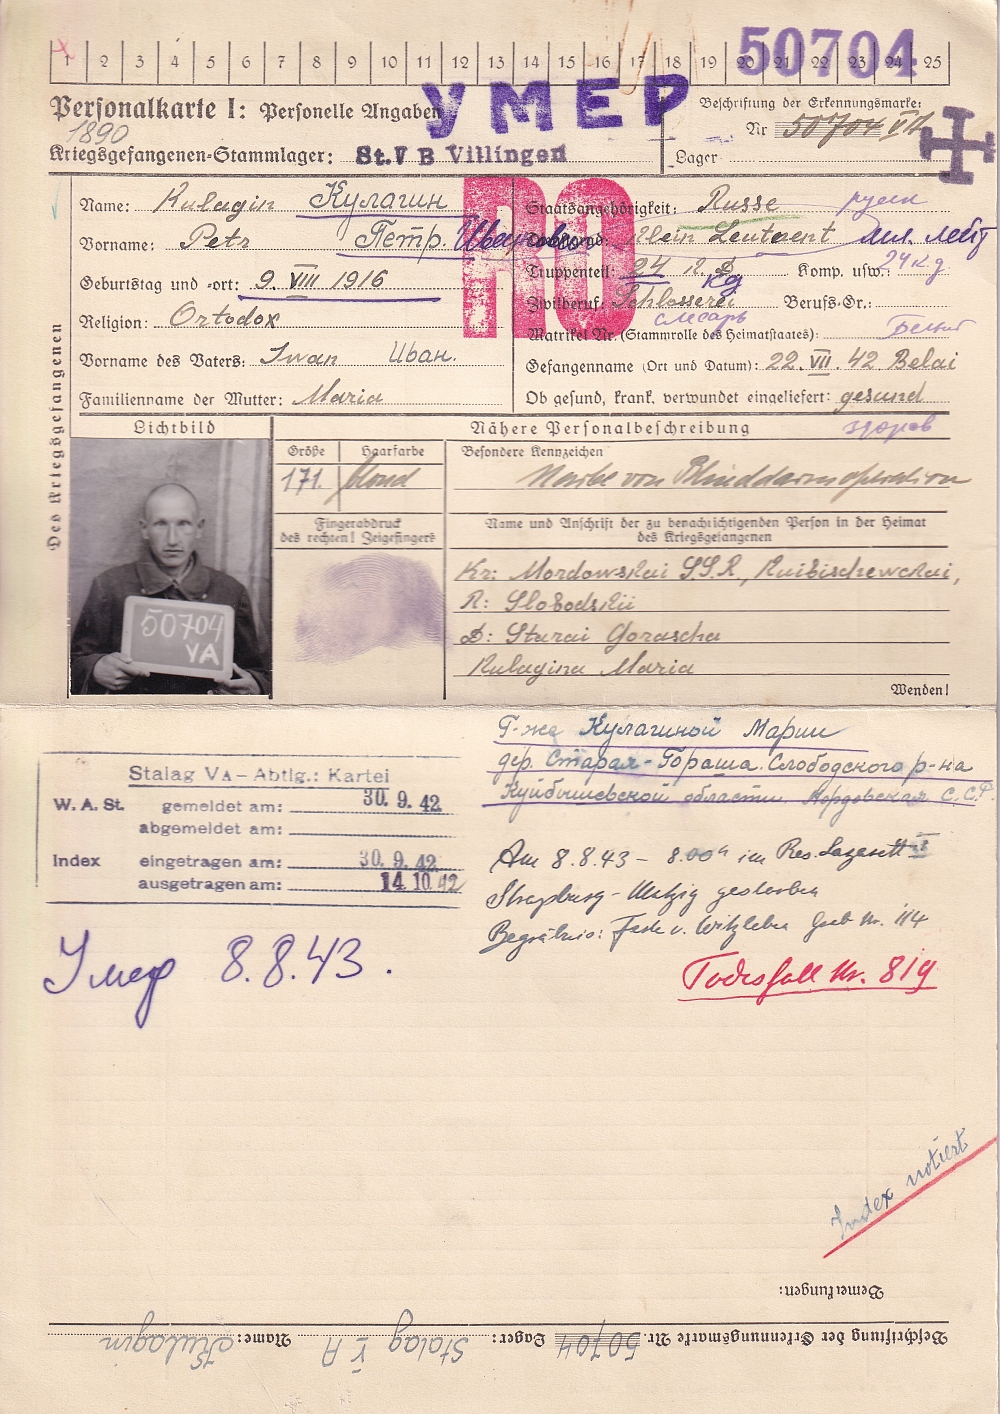 50704
1 2 3 4 5 6 7 8 9 10 11 12 13 14 15 16 17 18 19 20 21 22 23 24 25
УМЕР
Personalkarte I: Personelle Angaben
Beschriftung der Erkennungsmarke:
1890
Nr 50704 VA
Kriegsgefangenen-Stammlager: St.V B Villingen
Lager
RO
Des Kriegsgefangenen
Name: Kulagin Кулагин
Vorname: Petr Петр. Иванович
Geburtstag und -ort: 9. VIII 1916
Religion: Ortodox
Vorname des Vaters: Iwan Иван.
Familienname der Mutter: Maria
Staatsangehörigkeit: Russe русск
Dienstgrad: Klein Leutnent мл. лейт
Truppenteil: 24 Komp. usw.: 24 к.д
Zivilberuf: Schlosserei Berufs-Gr.:
слесарь
Matrikel Nr. (Stammrolle des Heimatstaates):
Gefangenname (Ort und Datum): 22. VII. 42 Belai
Ob gesund, krank, verwundet eingeliefert: gesund
здоров
Lichtbild
Nähere Personalbeschreibung
Größe Haarfarbe Besondere Kennzeichen
171. blond Narbe von Blinddarmoperation
Fingerabdruck
des rechten! Zeigefingers
Name und Anschrift der zu benachrichtigenden Person in der Heimat
des Kriegsgefangenen
50704
VA
Kr: Mordowskai S.S.R, Kuibischewskai,
R: Slobodskii
D: Starai Gorascha
Kulagina Maria
Wenden!
Г-же Кулагиной Марии
дер. Старая-Гораша. Слободского р-на
Куйбышевской области Мордовская С.С.Р.
Stalag VA – Abtlg.: Kartei
W. A. St. gemeldet am: 30. 9. 42
abgemeldet am:
Index eingetragen am: 30. 9. 42
ausgetragen am: 14. 10. 42
Am 8.8.43 – 8.00 h im Res. Lazarett
Strassburg - Mutzig gestorben
Begräbnis: Feste v. Witzleben Grab Nr. 114
Умер 8.8.43.
Todesfall Nr. 819
Index notiert
Bemerkungen:
Beschriftung der Erkennungsmarke Nr. 50704 Lager: Stalag V A Name: Kulagin